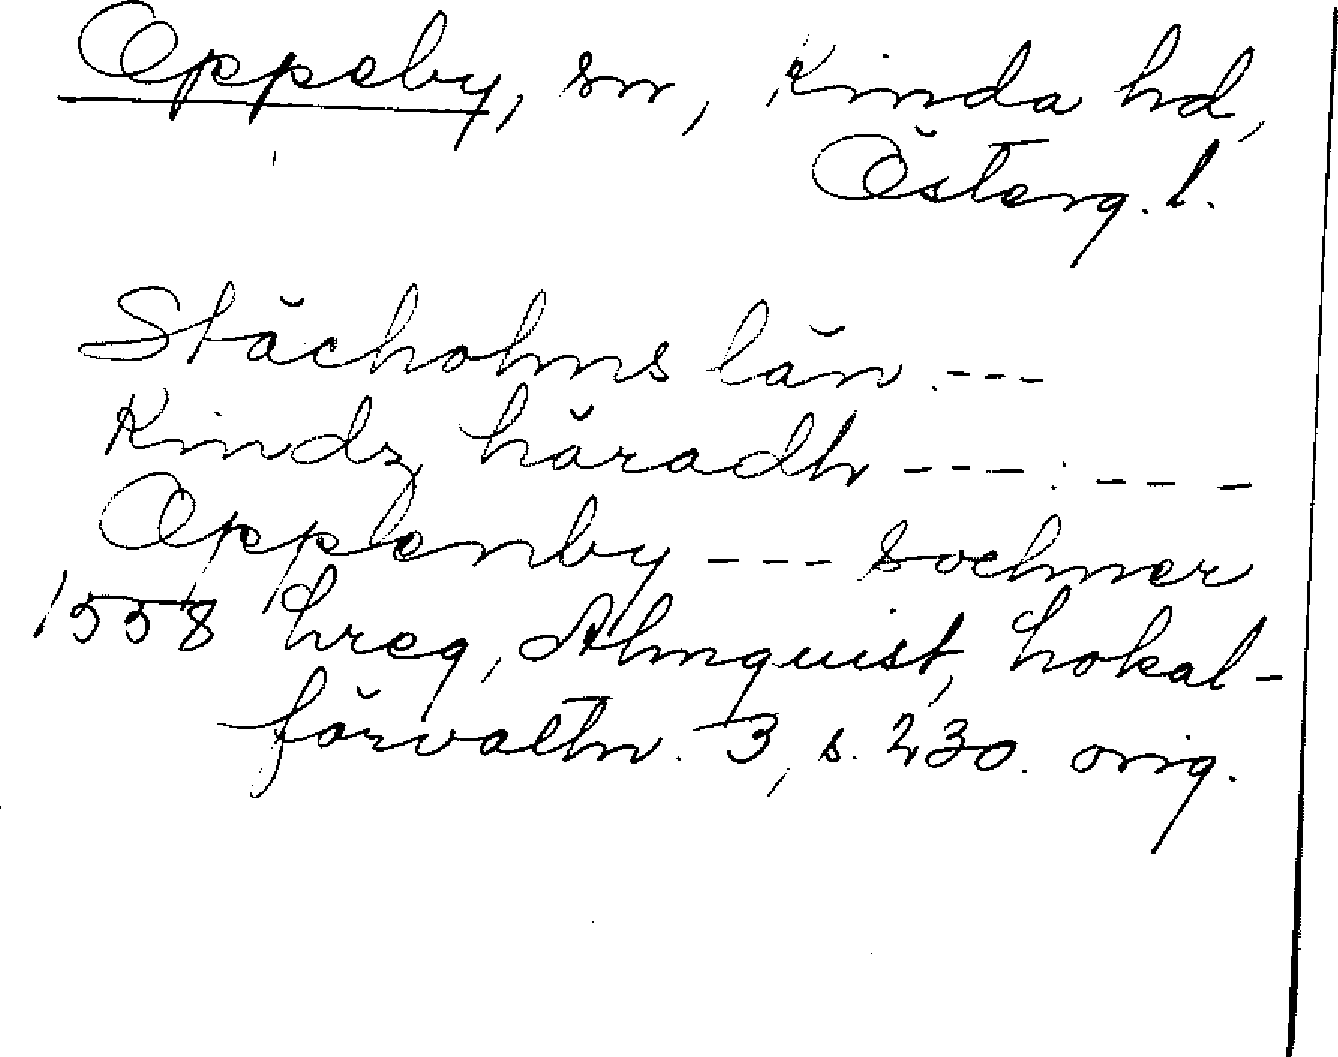 Oppeby, sn, Kinda hd,
Österg. l.
Stächolms län. ---
Kindz häradh ---. ---
Opplenby --- sochner
1558 hreg, Almquist, Lokal-
förvaltn. 3, s. 230. orig.